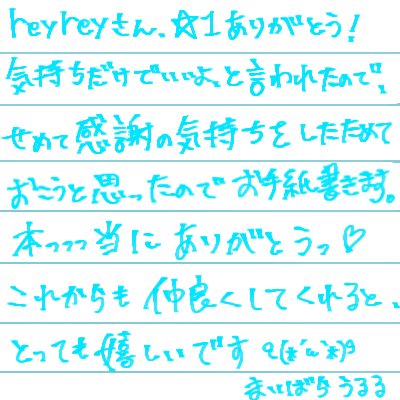 heyheyさん、☆1ありがとう!
気持ちだけでいいよ、と言われたので、
せめて感謝の気持ちをしたためて
おこうと思ったのでお手紙書きます。
本っっっ当にありがとうっ♡
これからも仲良くしてくれると、
とっても嬉しいです q(*´ω`*)p
まいばらうるる